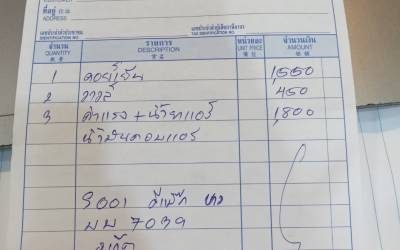 ที่อยู่
ADDRESS
เลขประจำตัวประชาชน
IDENTIFICATION NO
เลขประจำตัวผู้เสียภาษีอากร
TAX IDENTIFICATION NO
จำนวน รายการ หน่วยละ จำนวนเงิน
QUANTITY DESCRIPTION UNIT PRICE AMOUNT
1 คอยล์เย็น 1,550
2 วาวล์ 450
3 ค่าแรง + น้ำยาแอร์ 1,800
น้ำมันคอมแอร์
ดีแม็ก
7039